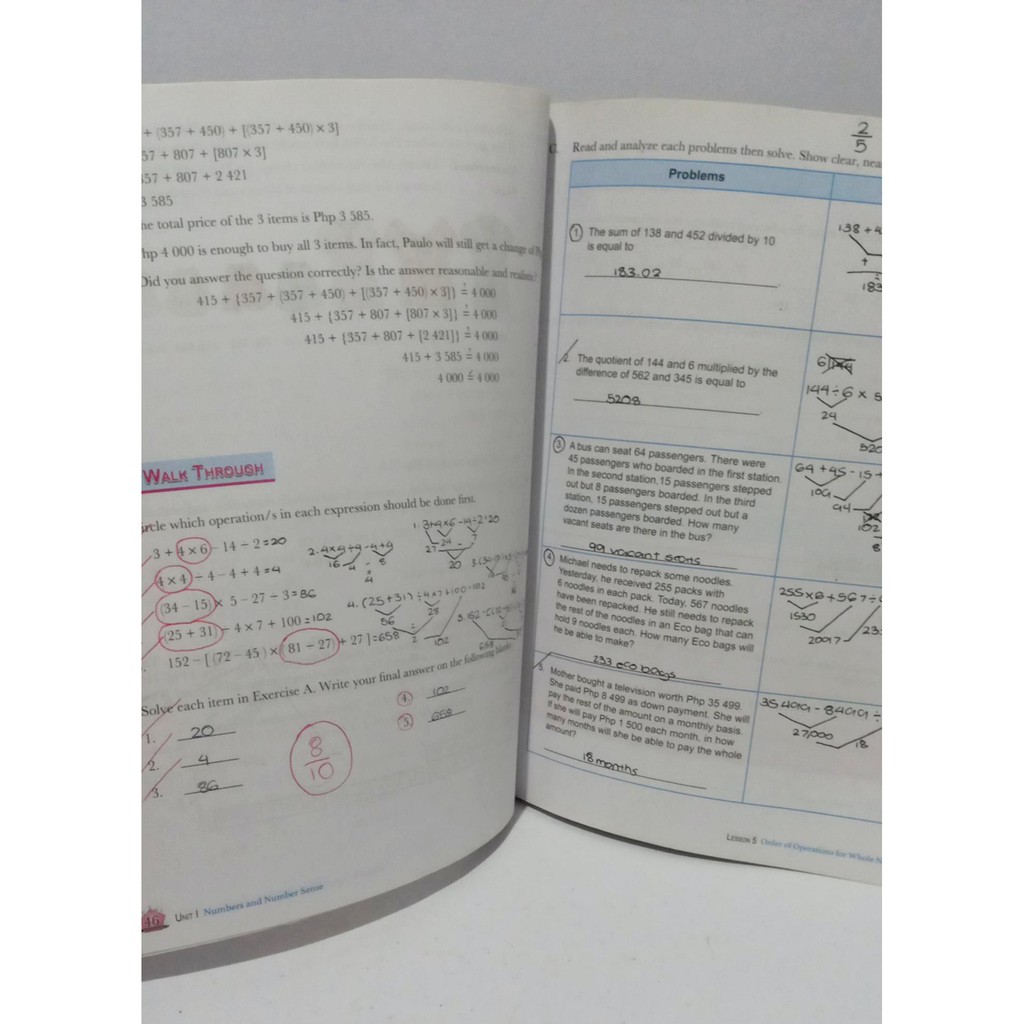 + (357 + 450) + [(357 + 450) × 3]
57 + 807 + [807 × 3]
357 + 807 + 2 421
3 585
he total price of the 3 items is Php 3 585.
hp 4 000 is enough to buy all 3 items. In fact, Paulo will still get a change of
Did you answer the question correctly? Is the answer reasonable and realistic?
415 + {357 + (357 + 450) + [(357 + 450) × 3]} ≟ 4 000
415 + {357 + 807 + [807 × 3]} ≟ 4 000
415 + {357 + 807 + [2 421]} ≟ 4 000
415 + 3 585 ≟ 4 000
4 000 ≟ 4 000
WALK THROUGH
ircle which operation/s in each expression should be done first.
3 + 4 × 6 - 14 ÷ 2 = 20
4 × 4 ÷ 4 - 4 + 4 = 4
(34 - 15) × 5 - 27 ÷ 3 = 86
(25 + 31) ÷ 4 × 7 + 100 = 102
152 - [(72 - 45) × (81 - 27) + 27] = 658
1. 3+4×6-14÷2=20
24
7
27
20
2. 4×4÷4-4+4
16
4
8
4
4. (25+31)÷4×7+100=102
56
28
2
102
658
Solve each item in Exercise A. Write your final answer on the following blanks
1. 20
2. 4
3. 86
4. 102
5. 658
8
10
46 UNIT 1 Numbers and Number Sense
2
5
C. Read and analyze each problems then solve. Show clear, nea
Problems
1. The sum of 138 and 452 divided by 10
is equal to
183.02
138 + 4
+
183
2. The quotient of 144 and 6 multiplied by the
difference of 562 and 345 is equal to
5208
144 ÷ 6 × 5
24
520
3. A bus can seat 64 passengers. There were
45 passengers who boarded in the first station.
In the second station, 15 passengers stepped
out but 8 passengers boarded. In the third
station, 15 passengers stepped out but a
dozen passengers boarded. How many
vacant seats are there in the bus?
99 vacant seats
64 + 45 - 15 +
109
94
102
8
4. Michael needs to repack some noodles.
Yesterday, he received 255 packs with
6 noodles in each pack. Today, 567 noodles
have been repacked. He still needs to repack
the rest of the noodles in an Eco bag that can
hold 9 noodles each. How many Eco bags will
he be able to make?
233 eco bags
255 × 6 + 567 ÷
1530
2097
23
5. Mother bought a television worth Php 35 499.
She paid Php 8 499 as down payment. She will
pay the rest of the amount on a monthly basis.
If she will pay Php 1 500 each month, in how
many months will she be able to pay the whole
amount?
18 months
35499 - 8499 ÷
27,000
18
LESSON 5 Order of Operations for Whole N